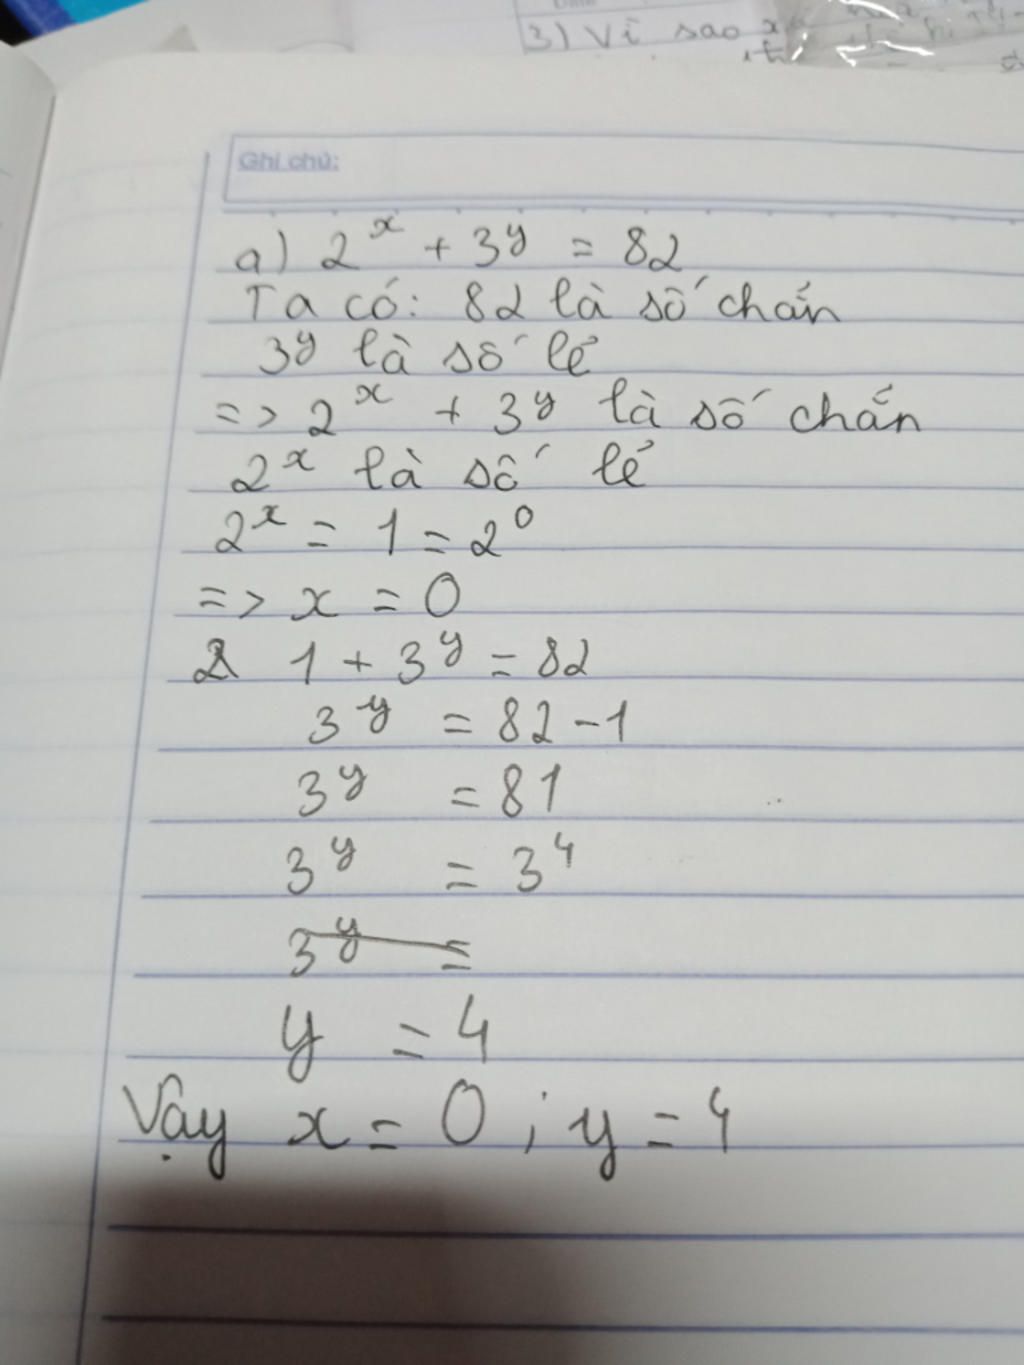 3) Vì sao x
Ghi chú:
a) 2^x + 3^y = 82
Ta có: 82 là số chẵn
3^y là số lẻ
=> 2^x + 3^y là số chẵn
2^x là số lẻ
2^x = 1 = 2^0
=> x = 0
1 + 3^y = 82
3^y = 82 - 1
3^y = 81
3^y = 3^4
3^y =
y = 4
Vậy x = 0 ; y = 4